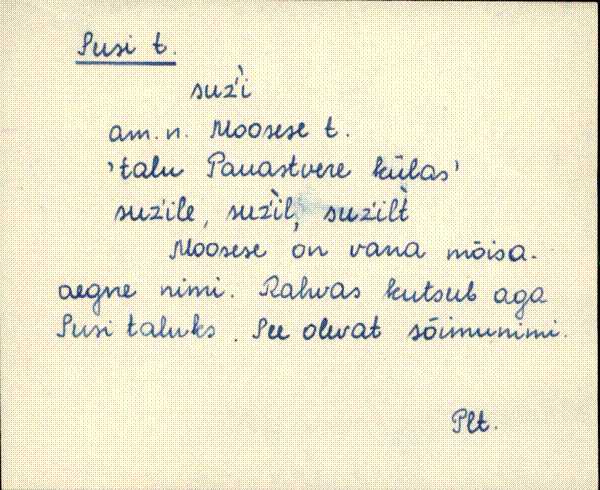 Susi t.
suz̀i
am. n. Moosese t.
'talu Pauastvere külas'
suz̀ile, suz̀il, suz̀ilt̀
Moosese on vana mõisa-
aegne nimi. Rahvas kutsub aga
Susi taluks. See olevat sõimunimi.
Plt.